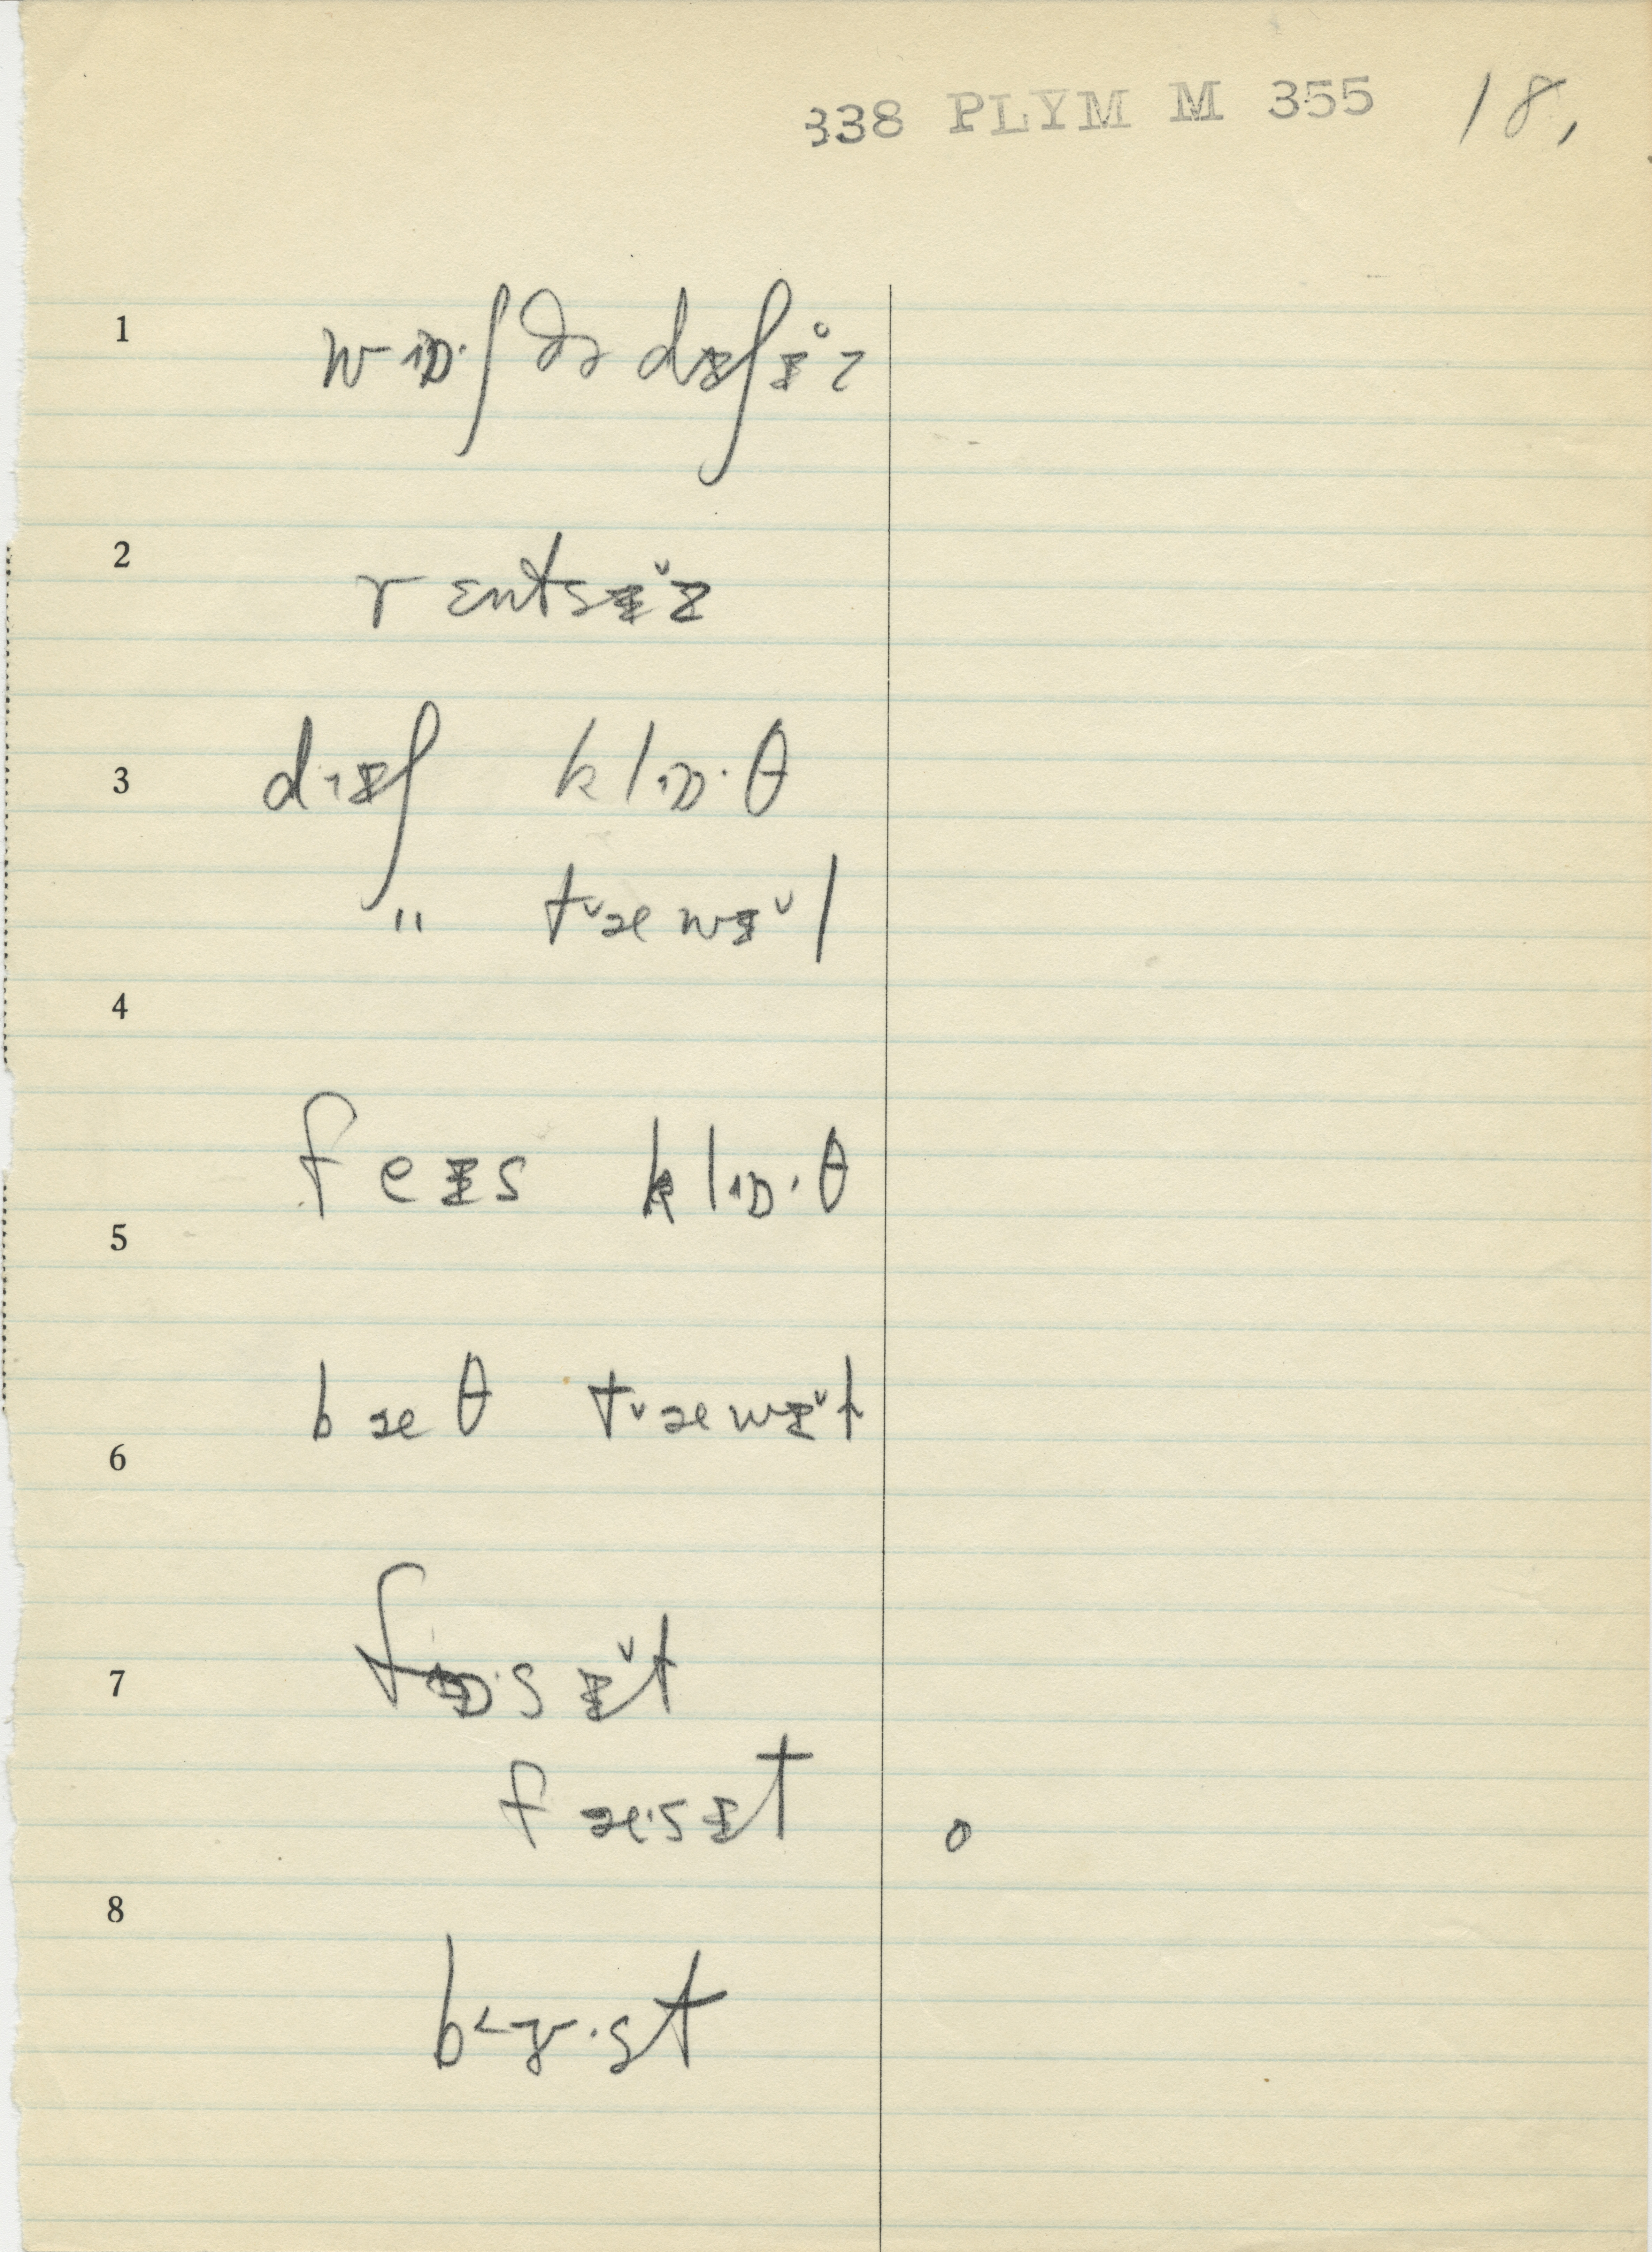 338 PLYM M 355 18,
1 wɒ·ʃ ðə dɪʃɪ̊z
2 rɛntsɪ̌z
3 dɪʃ klɒ·θ
" tˇæwɪ̌l
4
feɪs klɒ·θ
5
bæθ tˇæwɪ̌t
6
7 fɒ·sɪ̌t
fæ·sɪt o
8
b˂ɤ·st